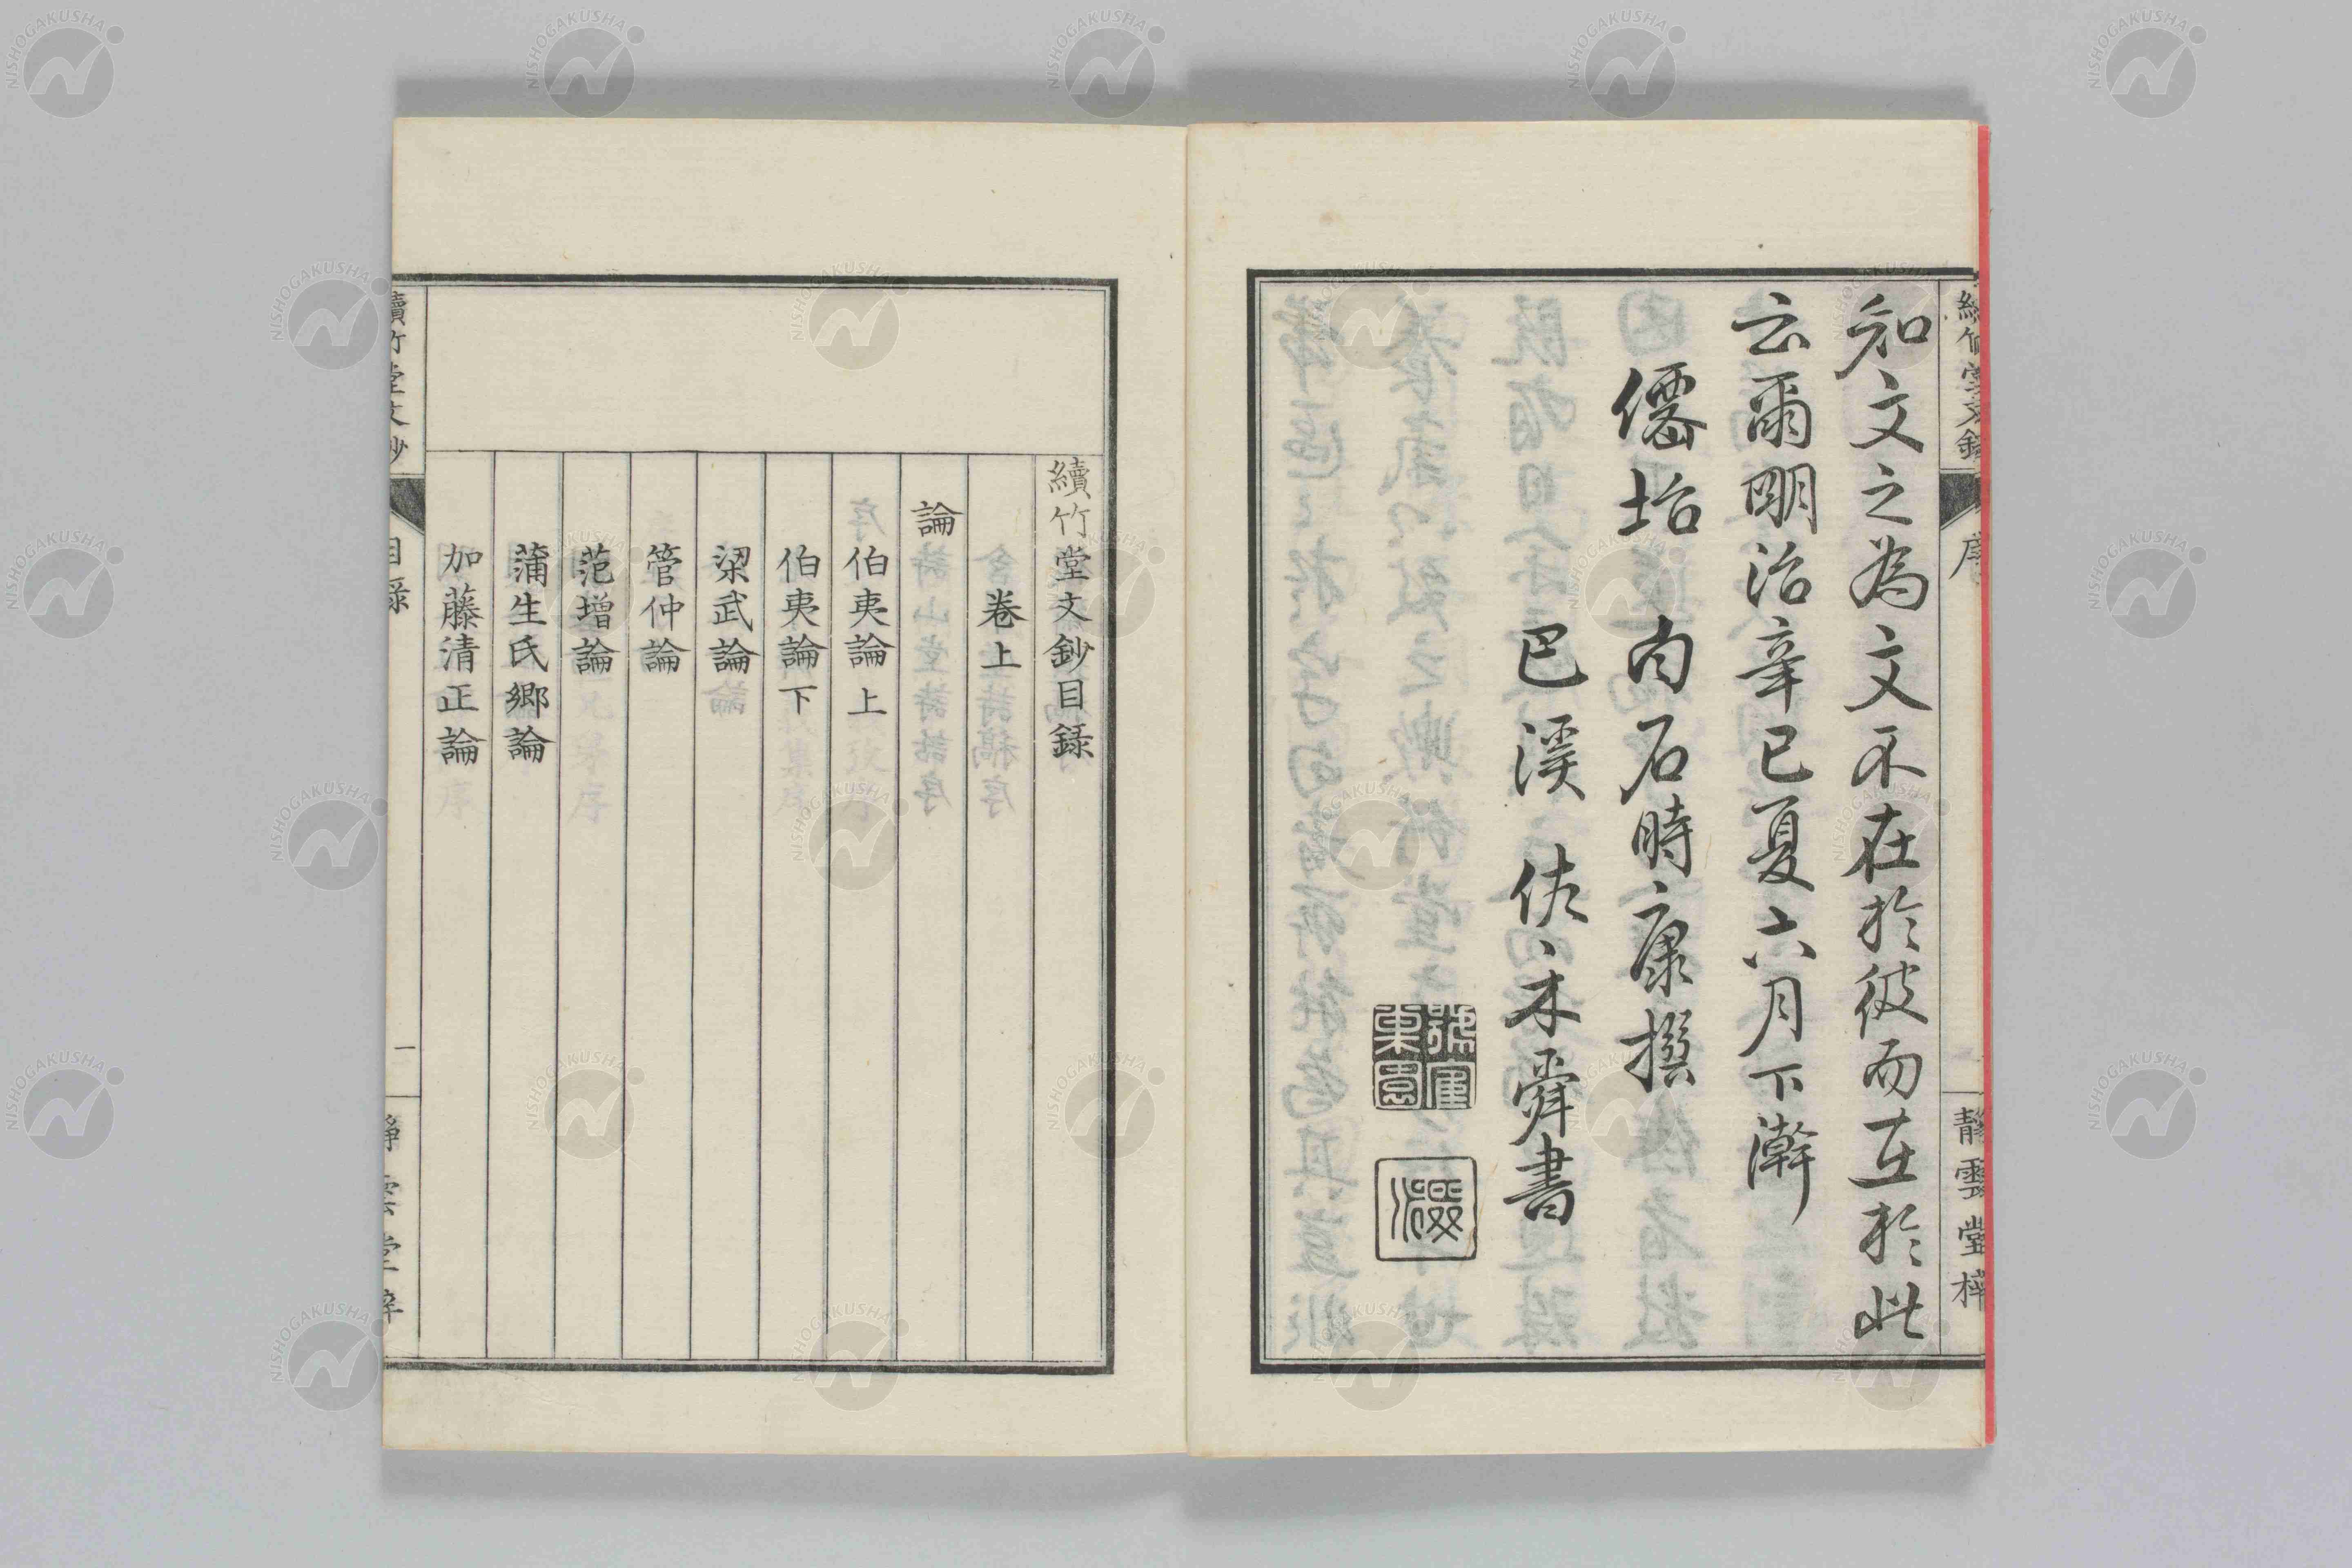 知文之為文不在於彼而在於此
云爾明治辛巳夏六月下澣
僊坮 内石時康撰
巴溪 佐々木舜書
續竹堂文鈔目錄
卷上
論
伯夷論上
伯夷論下
梁武論
管仲論
范增論
蒲生氏郷論
加藤清正論
續竹堂文鈔
目錄
一
靜雲堂梓
NISHOGAKUSHA